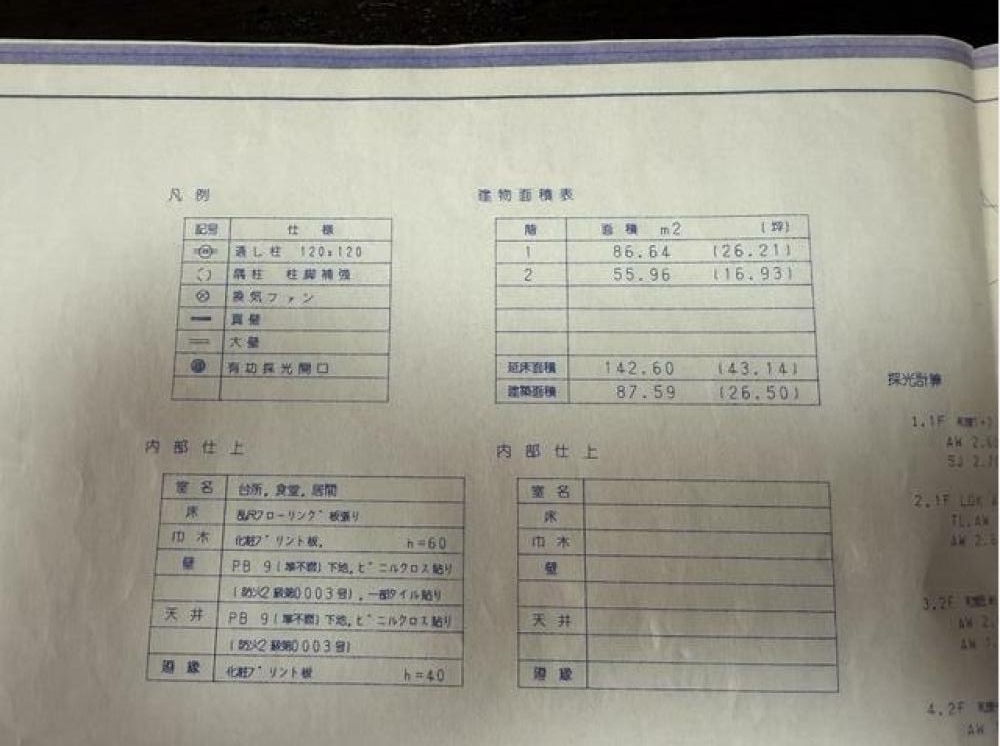 凡例
記号 仕様
通し柱 120x120
隅柱 柱脚補強
換気ファン
真壁
大壁
有効採光開口
建物面積表
階 面積 m2 (坪)
1 86.64 (26.21)
2 55.96 (16.93)
延床面積 142.60 (43.14)
建築面積 87.59 (26.50)
内部仕上
室名 台所,食堂,居間
床 乱尺フローリング板張り
巾木 化粧プリント板, h=60
壁 PB 9(準不燃)下地,ビニルクロス貼り
(防火2級第0003号),一部タイル貼り
天井 PB 9(準不燃)下地,ビニルクロス貼り
(防火2級第0003号)
廻縁 化粧プリント板 h=40
内部仕上
室名
床
巾木
壁
天井
廻縁
採光計算
1.1F
AW 2.
SJ 2.
2.1F LDK
TL,AW
AW 2.
3.2F
AW 2.
AW
4.2F
AW